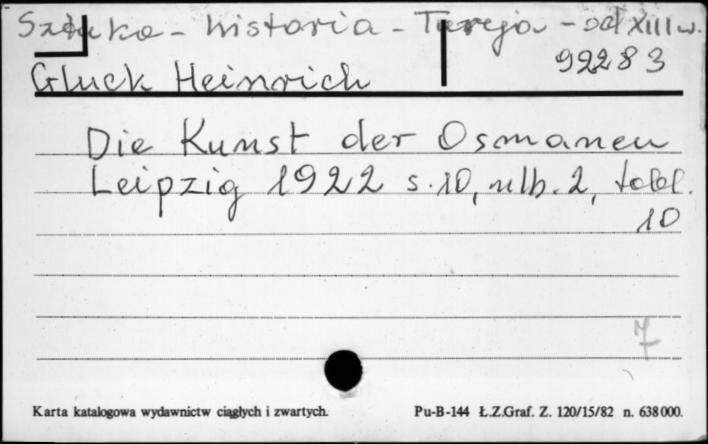 Sztuka - historia - Turcja - od XIII w.
92283
Gluck Heinrich
Die Kunst der Osmanen
Leipzig 1922 s. 10, nlb. 2, tabl.
10
7
Karta katalogowa wydawnictw ciągłych i zwartych. Pu-B-144 Ł.Z.Graf. Z. 120/15/82 n. 638000.